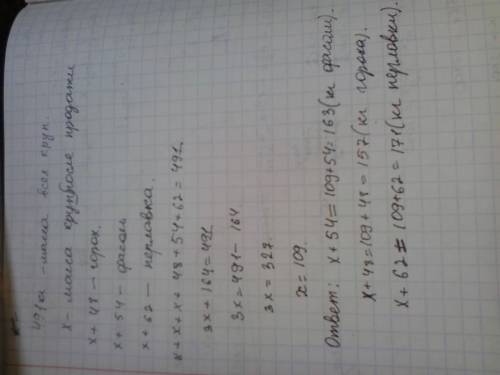 491 кг - масса всех круп
x - масса круп после продажи
x + 48 - горох.
x + 54 - фасоль
x + 62 - перловка.
x + x + x + 48 + 54 + 62 = 491
3x + 164 = 491
3x = 491 - 164
3x = 327.
x = 109.
Ответ: x + 54 = 109 + 54 = 163 (кг фасоли).
x + 48 = 109 + 48 = 157 (кг гороха).
x + 62 = 109 + 62 = 171 (кг перловки).